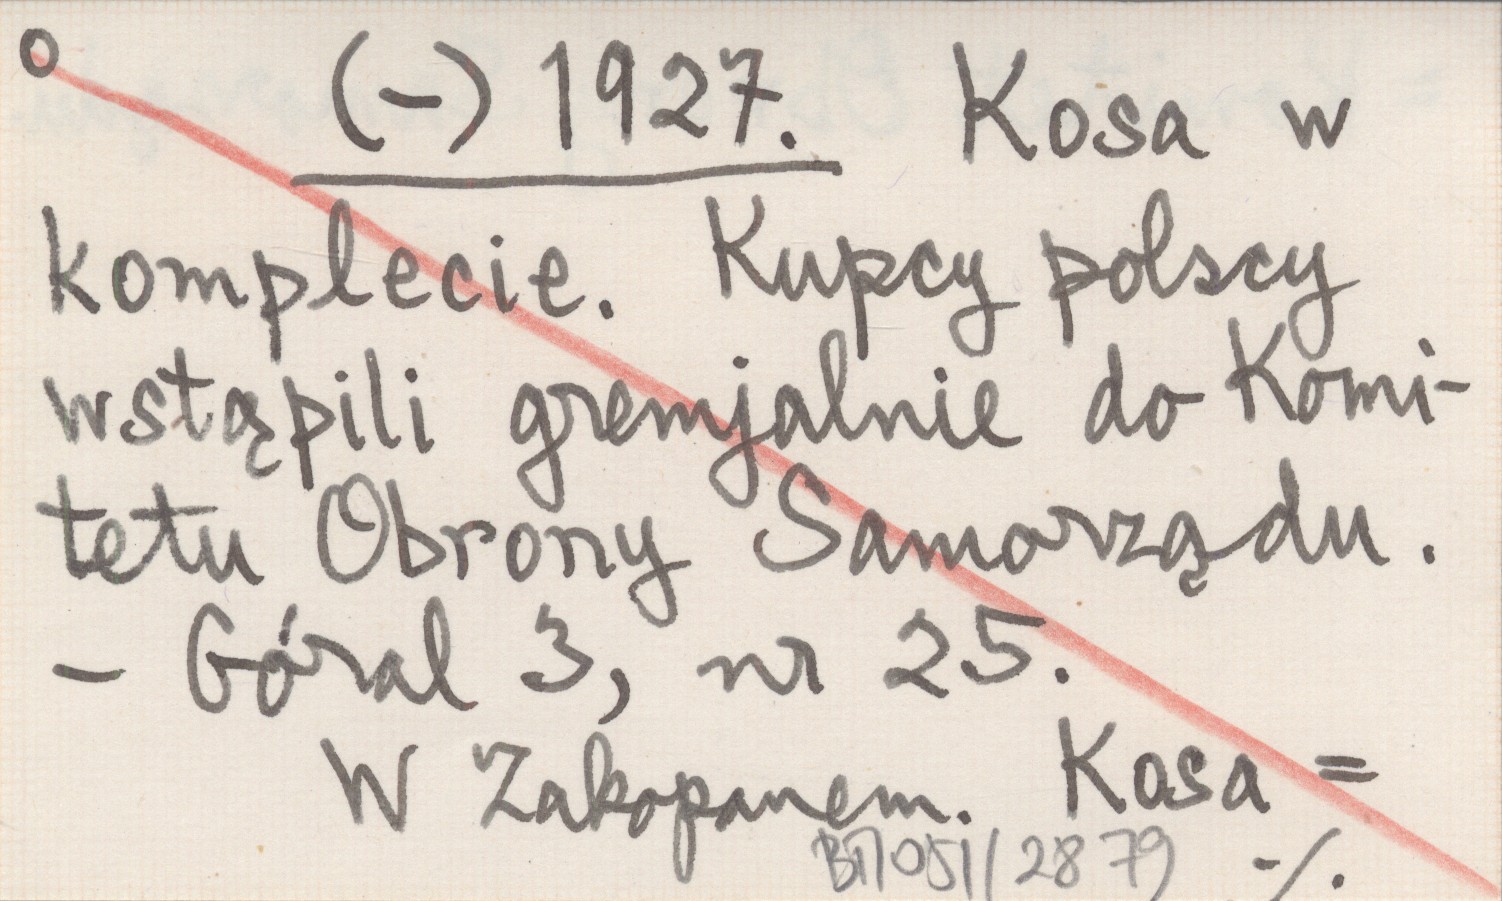 o (-) 1927. Kosa w
komplecie. Kupcy polscy
wstąpili gremjalnie do Komi-
tetu Obrony Samorządu.
- Góral 3, nr 25.
W Zakopanem. Kosa =
-/.